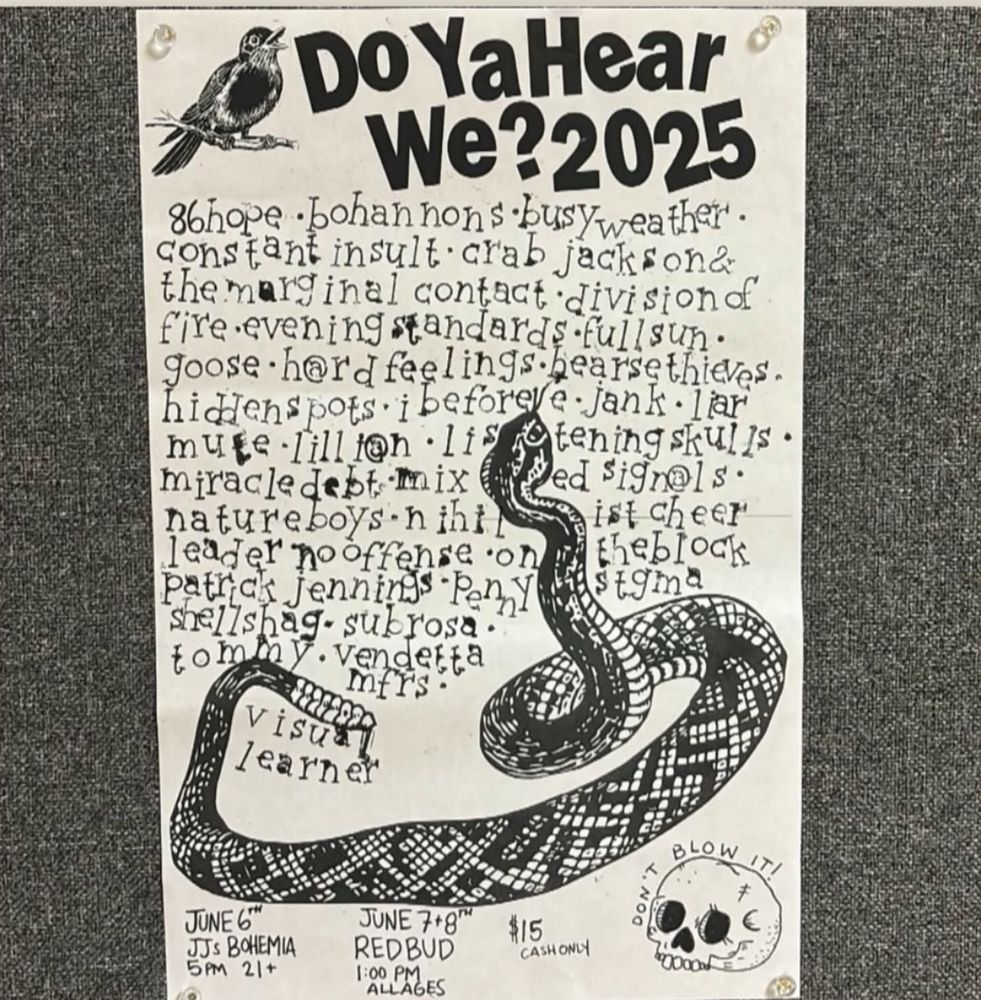 Do Ya Hear
We? 2025
86 hope · bohannons · busy weather ·
constant insult · crab jackson &
the marginal contact · division of
fire · evening standards · full sun ·
goose · h@rd feelings · hearse thieves ·
hidden spots · i before e · jank · liar
mute · lilli@n · listening skulls ·
miracle debt · mixed sign@ls ·
nature boys · nihilist cheer
leader no offense · on the block
patrick jennings · penny stgma
shellshag · subrosa ·
tommy · vendetta
mfrs ·
visual
learner
DON'T BLOW IT!
JUNE 6TH
JJs BOHEMIA
5PM 21+
JUNE 7+8TH
REDBUD
1:00 PM
ALL AGES
$15
CASH ONLY